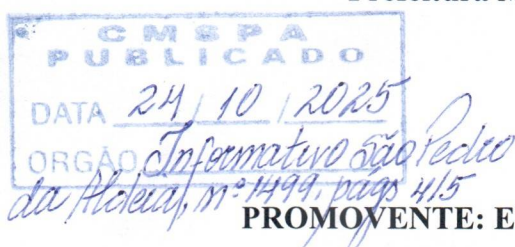 CMSPA
PUBLICADO
DATA 24/10/2025
ORGÃO Informativo São Pedro
da Aldeia, nº 1499, págs 4/5
PROMOVENTE: E